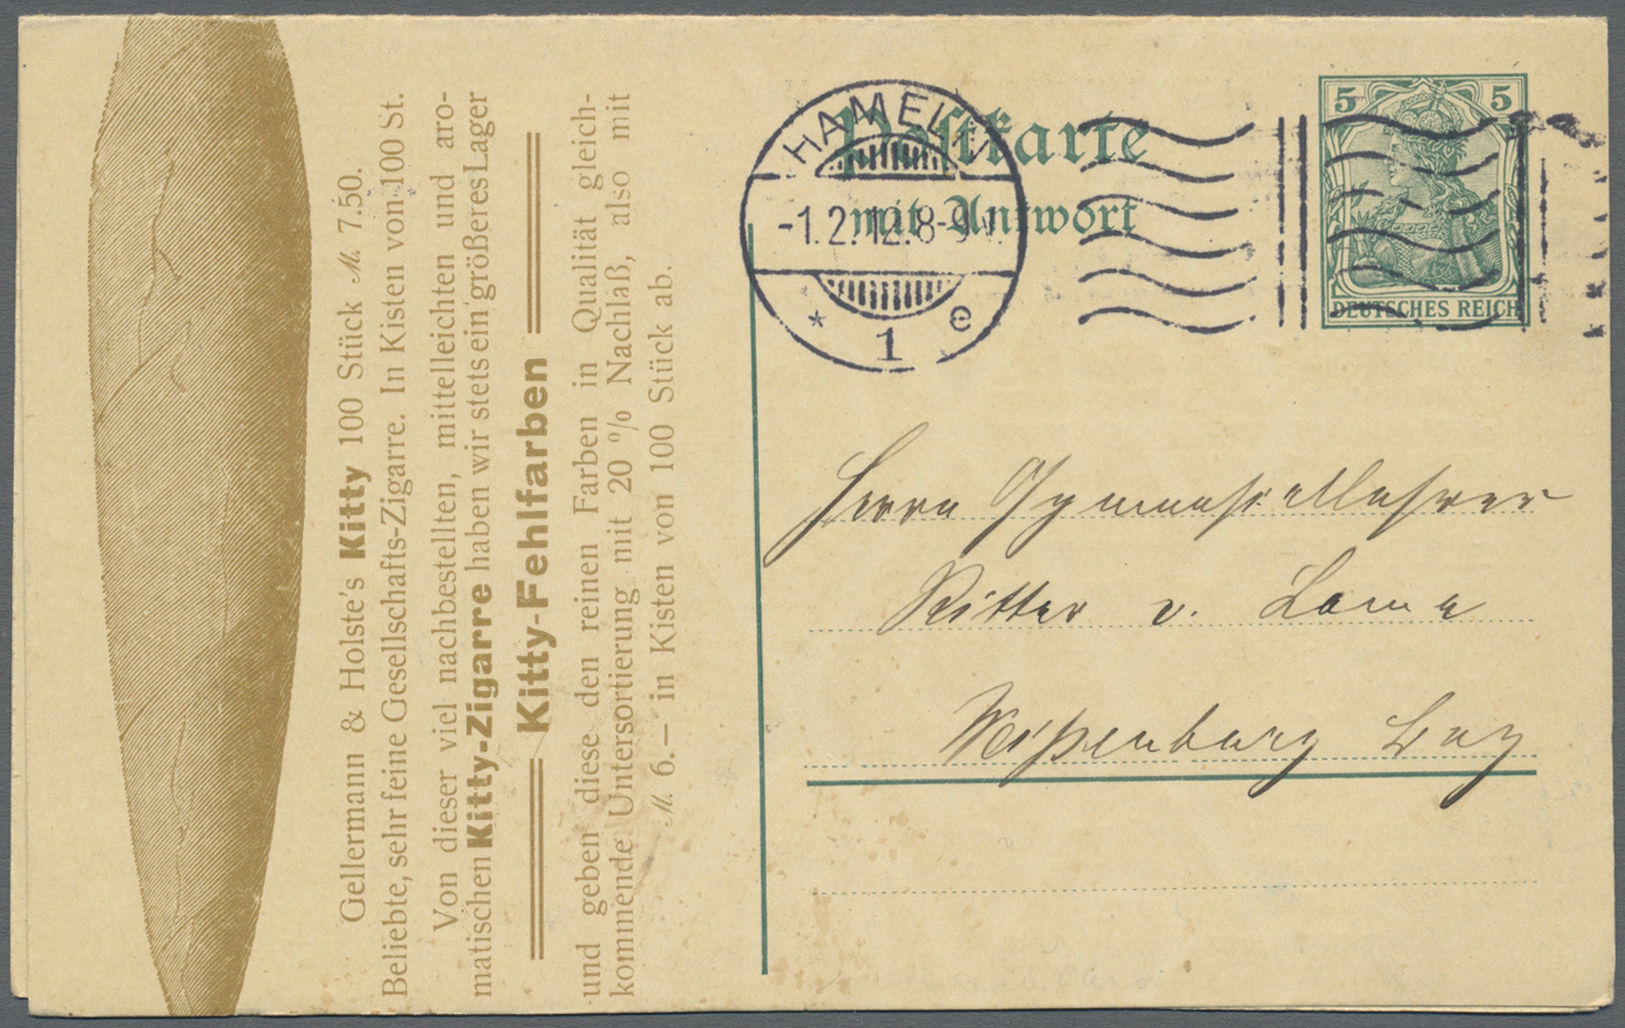 Gellermann & Holste's Kitty 100 Stück M. 7.50.
Beliebte, sehr feine Gesellschafts-Zigarre. In Kisten von 100 St.
Von dieser viel nachbestellten, mittelleichten und aro-
matischen Kitty-Zigarre haben wir stets ein größeres Lager
Kitty-Fehlfarben
und geben diese den reinen Farben in Qualität gleich-
kommende Untersortierung mit 20 % Nachlaß, also mit
M. 6.— in Kisten von 100 Stück ab.
Postkarte
mit Antwort
HAMELN
-1.2.12.8-9V.
* 1 e
5 5
DEUTSCHES REICH
Herrn Gymnasiallehrer
Ritter v. Lama
Weißenburg Bay